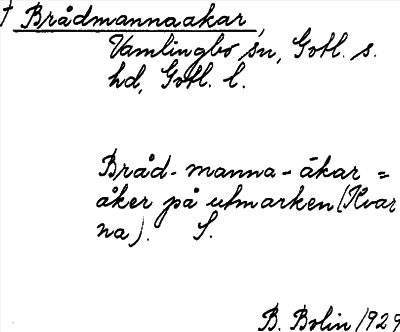 † Brådmannaakar,
Vamlingbo sn, Gotl. s.
hd, Gotl. l.
Bråd-manna-åkar =
åker på utmarken (Kvar
na). S.
B. Bolin 1929